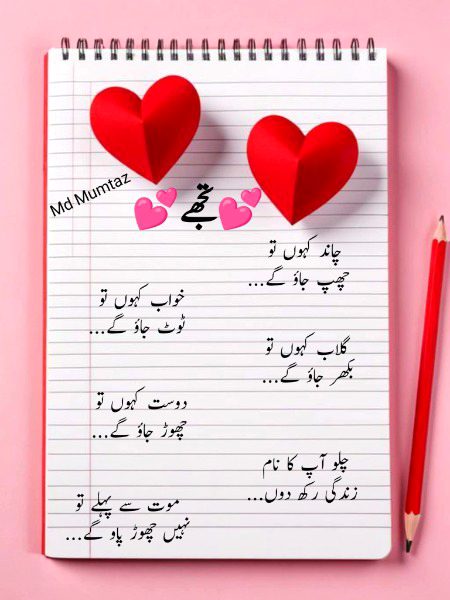 Md Mumtaz
💕 تجھے 💕
چاند کہوں تو
چھپ جاؤ گے...
خواب کہوں تو
ٹوٹ جاؤ گے...
گلاب کہوں تو
بکھر جاؤ گے...
دوست کہوں تو
چھوڑ جاؤ گے...
چلو آپ کا نام
زندگی رکھ دوں...
موت سے پہلے تو
نہیں چھوڑ پاو گے...